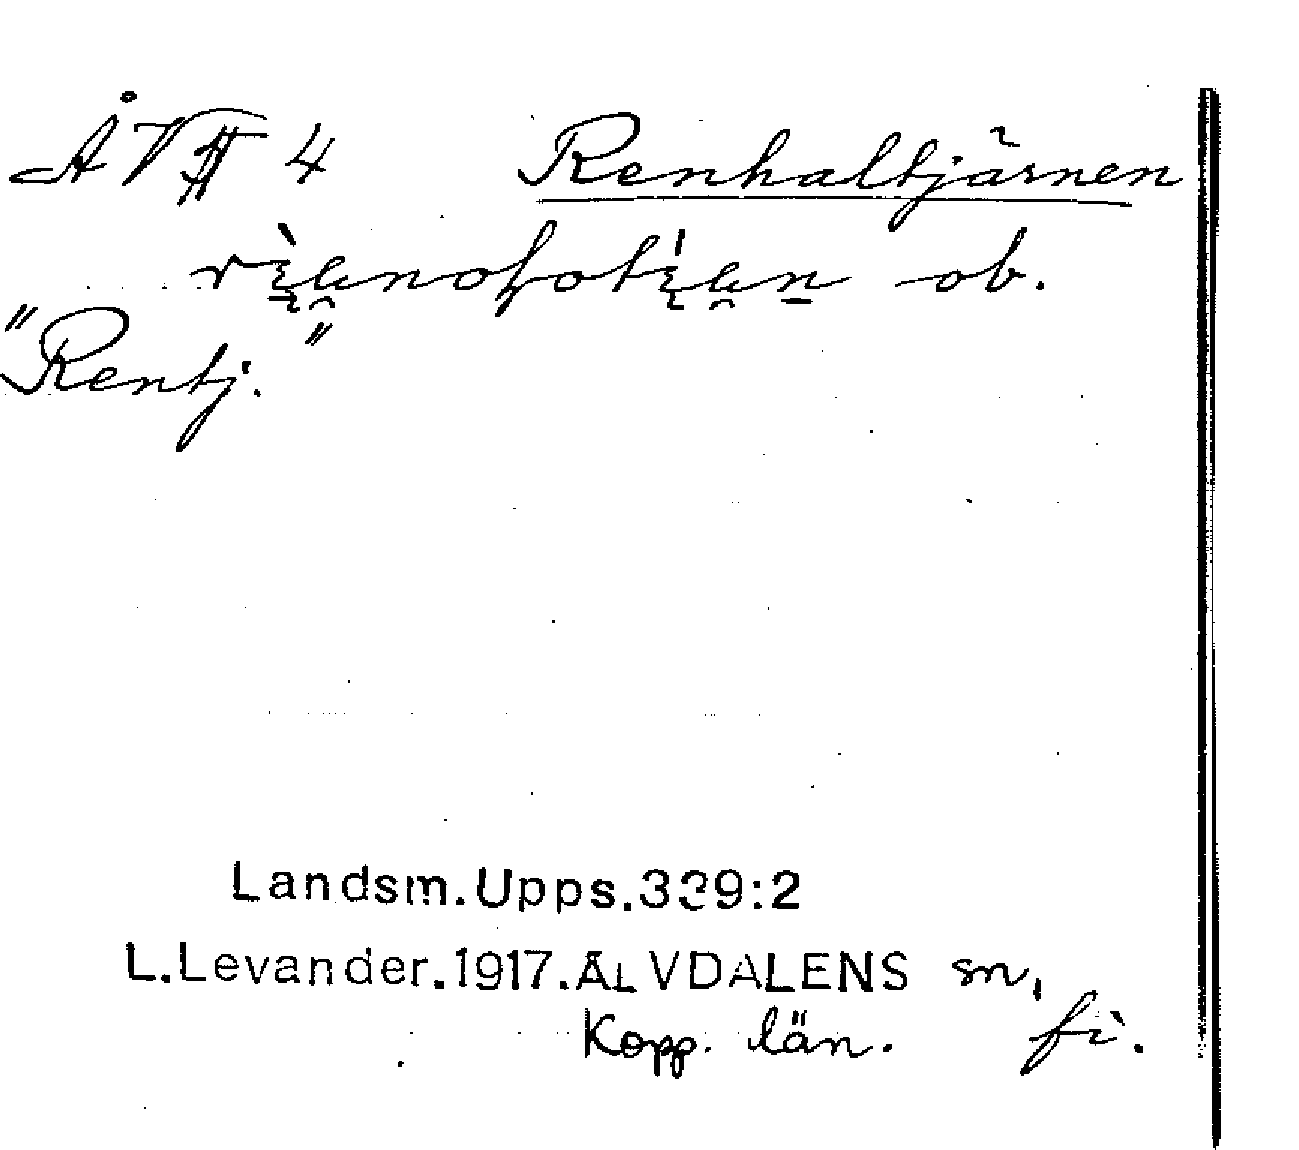 ÅV 4 Renhaltjärnen
ob.
"Rentj."
Landsm.Upps.339:2
L.Levander.1917.ÄLVDALENS sn,
Kopp. län. fi.